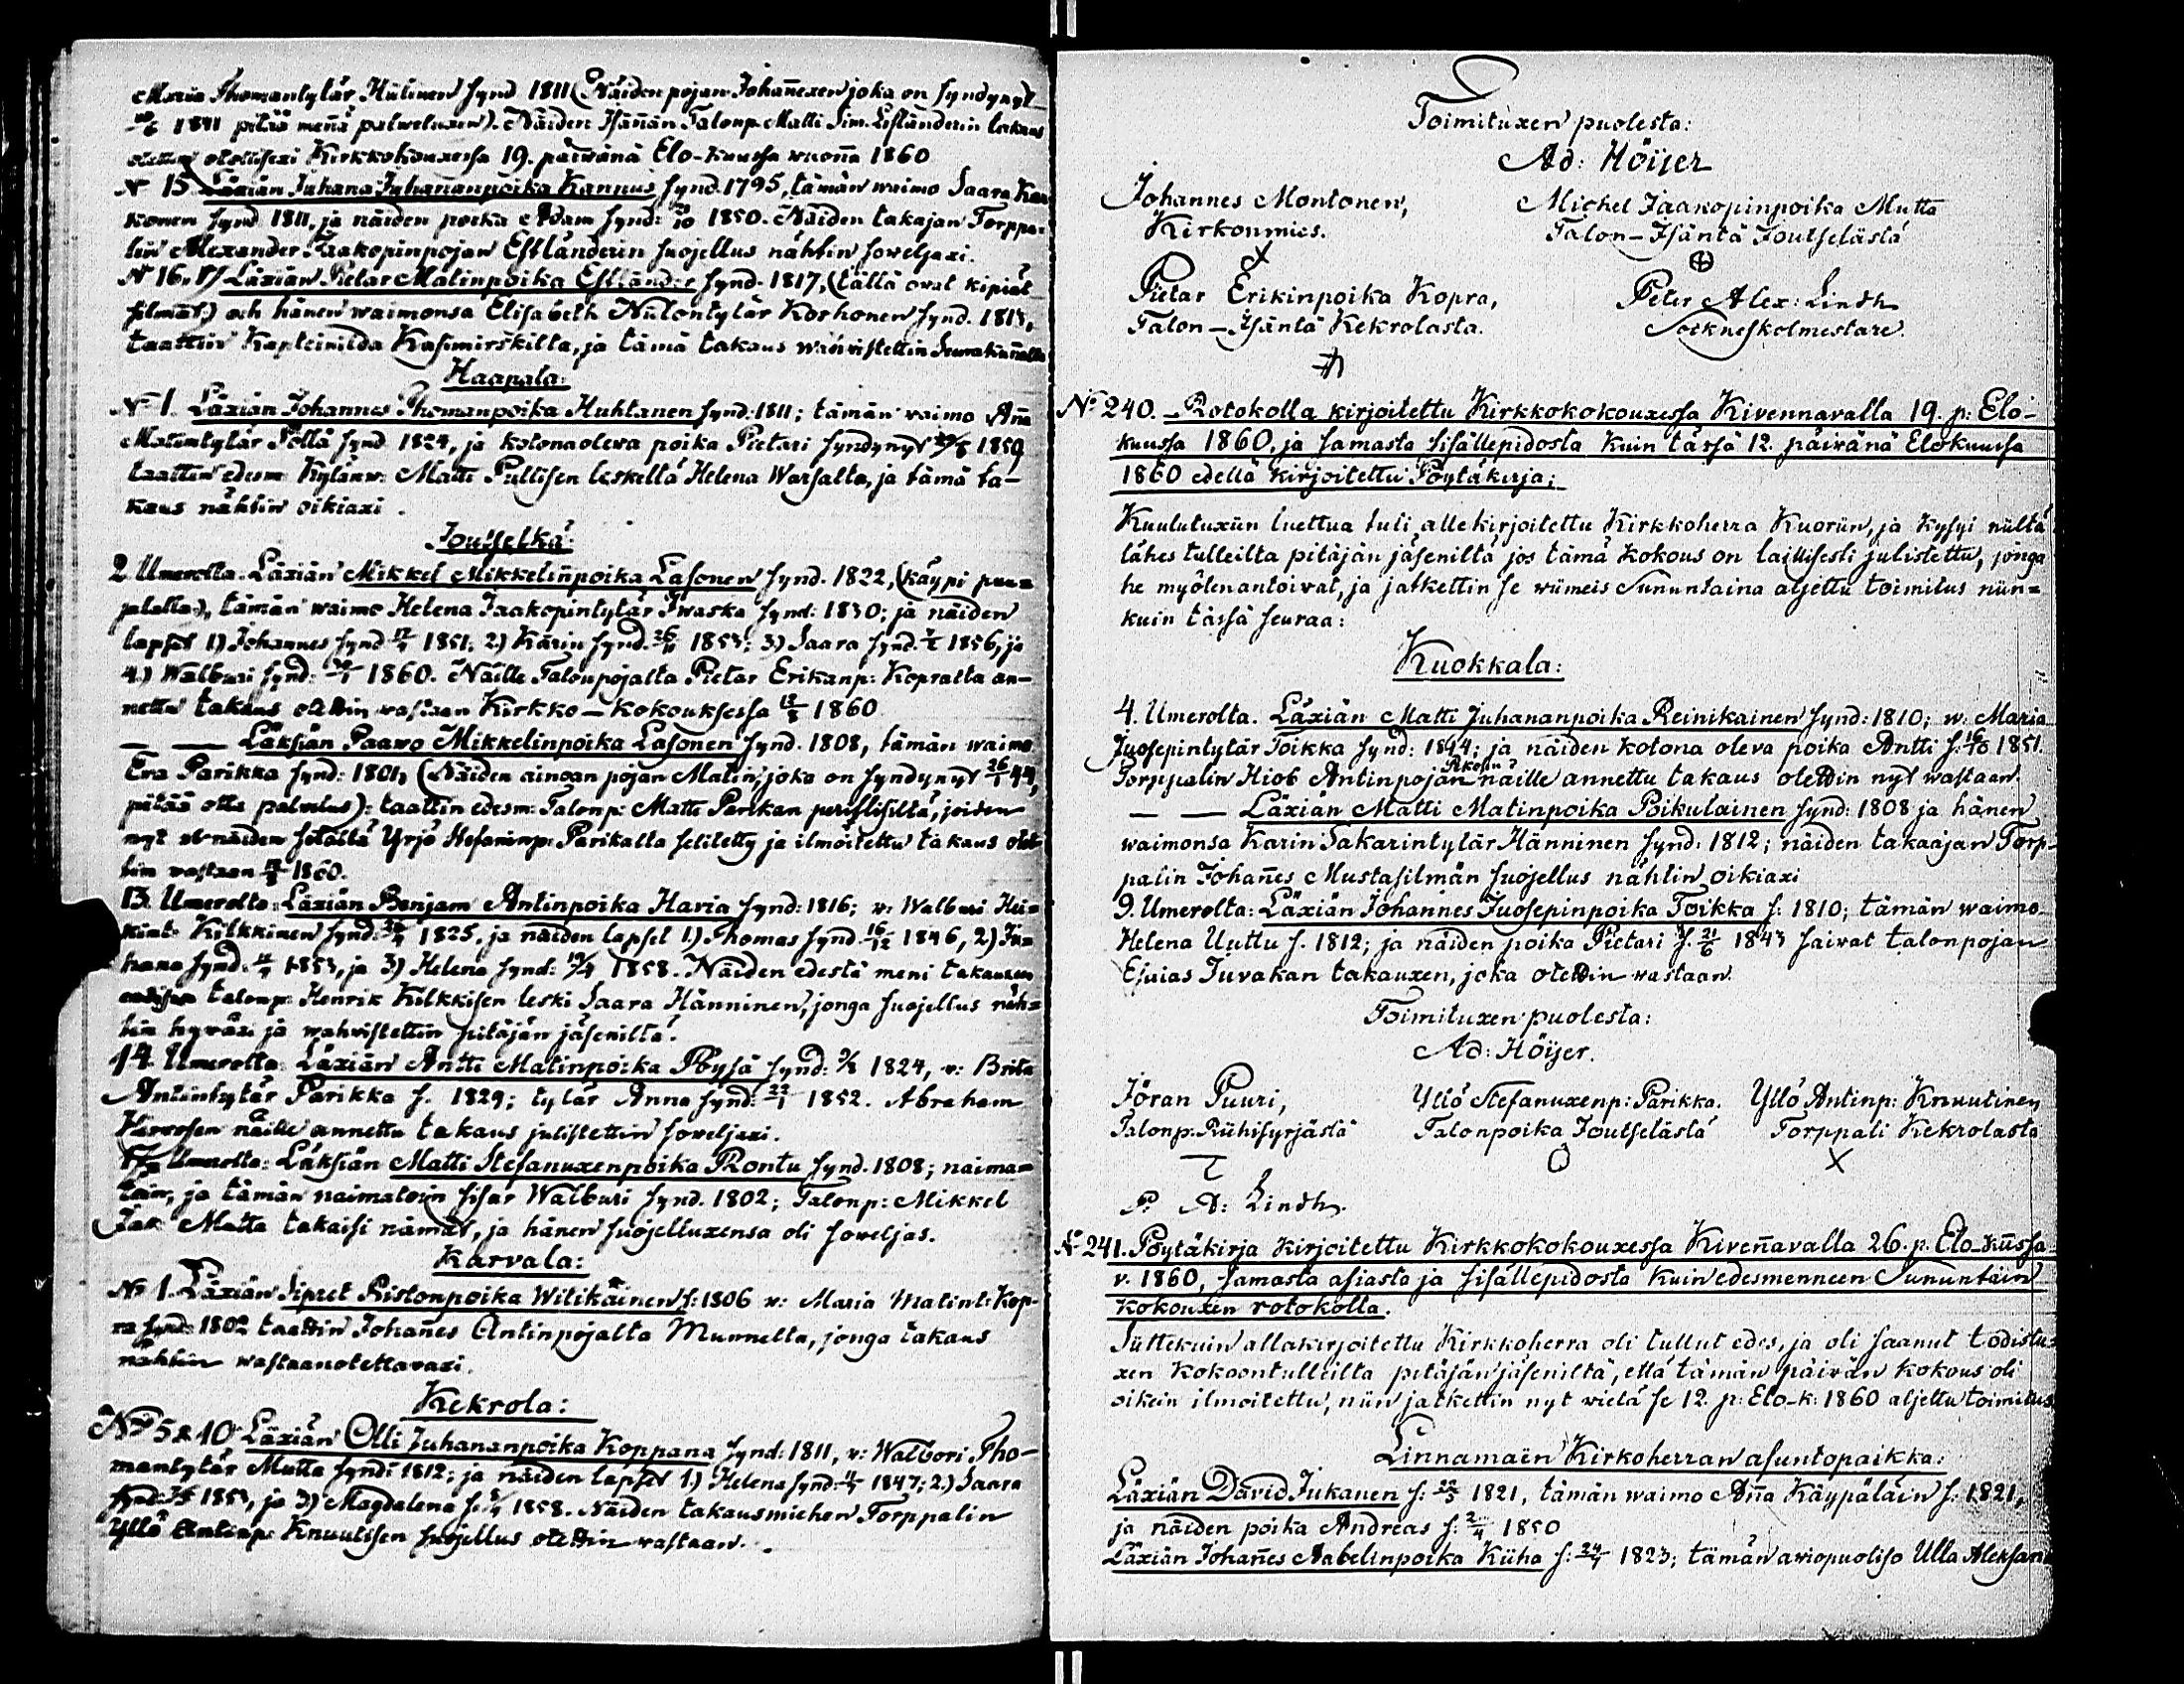 Maria Thomantytär Hütinen synd 1811 (Näiden pojan Johañexen joka on syndynyt
1841 pitää meñä palweluxen). Näiden Isäñän Talonp. Matti Sim. Estländerin takaus
otettin otollisexi Kirkkokouxessa 19. päiwänä Elo-kuussa wuoña 1860
N 15. Läxiän Juhana Juhananpoika Kannus synd. 1795, tämän waimo Saara Kar
konen synd 1811, ja näiden poika Adam synd: 1850. Näiden takajan Torppa=
lin Alexander Jaakopinpojan Estländerin suojellus nähtin soweljaxi.
N 16. 17 Läxiän Pietar Matinpoika Estländer synd. 1817, (tällä ovat kipiät
silmät) och hänen waimonsa Elisabeth Nülontytär Korhonen synd. 1813,
taattin Kapteinilda Kasimirskilta, ja tämä takaus wahvistettin Seurakuñalta
Haapala:
N 1. Läxiän Johannes Thomanpoika Huhtanen synd: 1811; tämän waimo Aña
Matintytär Pöllä synd 1824, ja kotonaoleva poika Pietari syndynyt 29/8 1859
taattin edesm Kylänw: Matti Pullisen leskeltä Helena Warsalta, ja tämä ta-
kaus nähtin oikiaxi.
Joutselkä:
2. Umerolta. Läxiän Mikkel Mikkeliñpoika Lasonen synd. 1822, (käypi puu=
jalalla), tämän waimo Helena Jaakopintytär Iwaska synd: 1830; ja näiden
lapset 1) Johannes synd 17/4 1851; 2) Kärin synd. 1853; 3) Saara synd. 1856, ja
4.) Walburi synd: 1860. Näille Talonpojalta Pietar Erikanp: Kopralta an-
nettu takaus otettin wastaan Kirkko-kokouksessa 12/8 1860
— — Läksiän Paawo Mikkelinpoika Lasonen synd. 1808, tämän waimo
Eva Parikka synd: 1801, (Näiden ainoan pojan Matin, joka on syndynyt 26/1 44,
pitää olla palvelus): taattin edesm: Talonp: Matti Parikan perillisiltä, joiden
nyt näiden sedältä Yrjö Stefaninp: Parikalta selitetty ja ilmöitettu takaus otet
tin wastaan 12/8 1860.
13. Umerolta: Läxiän Benjam Antinpoika Haria synd: 1816; w: Walburi Hei=
kint: Kilkkinen synd: 1825, ja näiden lapset 1) Thomas synd. 16/12 1846, 2) Ju=
hana synd: 1853, ja 3) Helena synd: 19/4 1858. Näiden edestä meni takauxen
talonp: Henrik Kilkkisen leski Saara Hänninen, jonga suojellus näh=
tin hyväxi ja wahwistettin pitäjän jäseniltä.
14. Umerolta: Läxiän Antti Matinpoika Pöysä synd: 1824, w: Brita
Antintytär Parikka s. 1829; tytär Anna synd: 22/1 1852. Abraham
näille annettu takaus julistettin soweljaxi.
Umerolta: Läksiän Matti Stefanuxenpoika Rontu synd. 1808; naima=
toin, ja tämän naimatoin sisar Walburi synd. 1802; Talonp: Mikkel
Jak: Mutta takaisi nämät, ja hänen suojelluxensa oli soweljas.
Karvala:
N 1. Läxiän Sipret Ristonpoika Witikäinen s: 1806 w: Maria Matint: Kop-
ra synd: 1802 taattin Johañes Antinpojalta Munnelta, jonga takaus
nähtin wastaanotettavaxi.
Kekrola:
No 5 & 10 Läxiän Olli Juhananpoika Koppana synd: 1811, w: Walbori Tho-
mantytär Mutta synd: 1812; ja näiden lapset 1) Helena synd: 1847; 2.) Saara
synd: 1853, ja 3) Magdalena s: 1858. Näiden takausmiehen Torppalin
Yllö Antinp: Knuutisen suojellus otettin wastaan.
Toimituxen puolesta:
Ad: Höijer
Johannes Montonen, Michel Jaakopinpoika Mutta
Kirkonmies. Talon-Isäntä Joutselästä
X
Pietar Erikinpoika Kopra, Peter Alex: Lindh
Talon-Isäntä Kekrolasta. Sockneskolmestare.
No 240. Rotokolla kirjoitettu Kirkkokokouxessa Kivennavalla 19. p: Elo-
kuussa 1860, ja samasta sisällepidosta kuin tässä 12. päivänä Elokuussa
1860 edellä kirjoitettu Pöytäkirja;
Kuulutuxiin luettua tuli allekirjoitettu Kirkkoherra Kuoriin, ja kysyi nültä
lähes tulleilta pitäjän jäseniltä, jos tämä kokous on laillisesti julistettu, jonga
he myötenantoivat, ja jatkettin se wümeis Sununtaina aljettu toimitus nün=
kuin tässä seuraa:
Kuokkala:
4. Umerolta. Läxiän Matti Juhananpoika Reinikainen synd: 1810; w: Maria
Juosepintytär Toikka synd: 1814; ja näiden kotona oleva poika Antti s: 16/10 1851.
Torppalin Hiob Antinpojan näille annettu takaus otettin nyt wastaan.
— — Läxiän Matti Matinpoika Poikulainen synd: 1808 ja hänen
waimonsa Karin Sakarintytär Hänninen synd: 1812; näiden takaajan Torp-
palin Johañes Mustasilmän suojellus nähtin oikiaxi
9. Umerolta: Läxiän Johannes Juosepinpoika Toikka s: 1810; tämän waimo
Helena Uuttu s. 1812; ja näiden poika Pietari s. 21/6 1843 saivat talonpojan
Esaias Juvakan takauxen, joka otettin wastaan.
Toimituxen puolesta:
Ad: Höijer.
Jöran Puuri, Yllö Stefanuxenp: Parikka. Yllö Antinp: Knuutinen
Talonp. Rühisyrjästä Talonpoika Joutselästä Torppali Kekrolasta
X
P. A: Lindh.
No 241. Pöytäkirja kirjoitettu Kirkkokokouxessa Kiveñavalla 26. p. Elo-küssa
v. 1860, samasta asiasta ja sisällepidosta kuin edesmenneen Sununtain
kokouxen rotokolla.
Süttekuin allakirjoitettu Kirkkoherra oli tullut edes, ja oli saanut todistu=
xen kokoontulleilta pitäjän jäseniltä, että tämän päivän kokous oli
oikein ilmoitettu, nün jatkettin nyt vielä se 12. p: Elo-k: 1860 aljettu toimitus
Linnamäen Kirkoherran asuntopaikka:
Läxiän David Jukanen s: 22/3 1821, tämän waimo Aña Käypäläin s: 1821,
ja näiden poika Andreas s: 2/4 1850
Läxiän Johañes Aabelinpoika Küha s: 24/4 1823; tämän aviopuoliso Ulla Aleksan